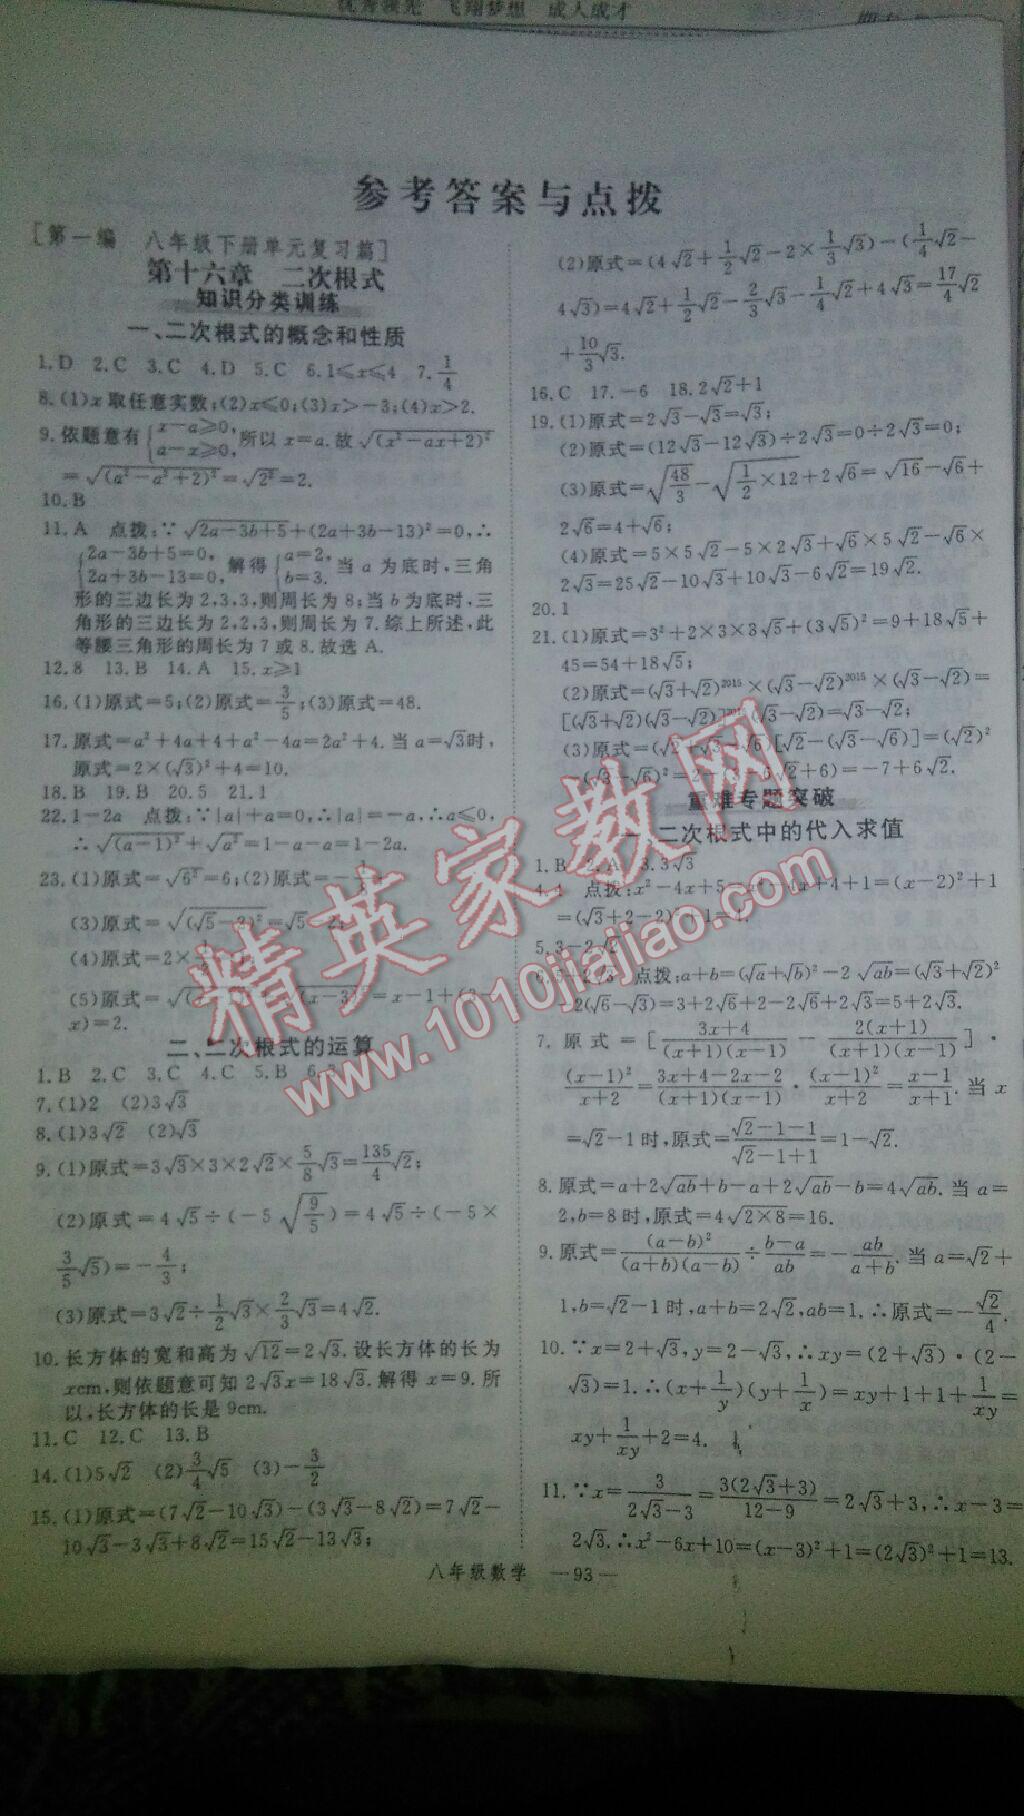 飞翔梦想 成人成才
参考答案与点拨
[第一编 八年级下册单元复习篇]
第十六章 二次根式
知识分类训练
一、二次根式的概念和性质
1.D 2.C 3.C 4.D 5.C 6.1≤x≤4 7.1/4
8.(1)x取任意实数;(2)x≤0;(3)x>-3;(4)x>2.
9.依题意有{x-a≥0, a-x≥0, 所以x=a.故√(x²-ax+2)²
=√(a²-a²+2)²=√2²=2.
10.B
11.A 点拨:∵√(2a-3b+5)+(2a+3b-13)²=0,∴
{2a-3b+5=0, 2a+3b-13=0, 解得{a=2, b=3. 当a为底时,三角
形的三边长为2,3,3,则周长为8;当b为底时,三
角形的三边长为2,2,3,则周长为7.综上所述,此
等腰三角形的周长为7或8.故选A.
12.8 13.B 14.A 15.x≥1
16.(1)原式=5;(2)原式=3/5;(3)原式=48.
17.原式=a²+4a+4+a²-4a=2a²+4.当a=√3时,
原式=2×(√3)²+4=10.
18.B 19.B 20.5 21.1
22.1-2a 点拨:∵|a|+a=0,∴|a|=-a,∴a≤0,
∴√(a-1)²+√a²=1-a-a=1-2a.
23.(1)原式=√6²=6;(2)原式=-
(3)原式=√(√5-2)²=√5-2;
(4)原式=2×
(5)原式=√ (x-3)²=x-1+(3-
x)=2.
二、二次根式的运算
1.B 2.C 3.C 4.C 5.B 6.
7.(1)2 (2)3√3
8.(1)3√2 (2)√3
9.(1)原式=3√3×3×2√2×5/8√3=135/4√2;
(2)原式=4√5÷(-5√(9/5))=4√5÷(-5×
3/5√5)=-4/3;
(3)原式=3√2÷1/2√3×2/3√3=4√2.
10.长方体的宽和高为√12=2√3.设长方体的长为
xcm,则依题意可知2√3x=18√3.解得x=9.所
以,长方体的长是9cm.
11.C 12.C 13.B
14.(1)5√2 (2)3/4√5 (3)-3/2
15.(1)原式=(7√2-10√3)-(3√3-8√2)=7√2-
10√3-3√3+8√2=15√2-13√3;
(2)原式=(4√2+1/2√2-2×1/3√3)-(1/4√2-
4√3)=4√2+1/2√2-2/3√3-1/4√2+4√3=17/4√2
+10/3√3.
16.C 17.-6 18.2√2+1
19.(1)原式=2√3-√3=√3;
(2)原式=(12√3-12√3)÷2√3=0÷2√3=0;
(3)原式=√(48/3)-√(1/2×12)+2√6=√16-√6+
2√6=4+√6;
(4)原式=5×5√2-5×2√3+√6×5√2-√6×
2√3=25√2-10√3+10√3-6√2=19√2.
20.1
21.(1)原式=3²+2×3×3√5+(3√5)²=9+18√5+
45=54+18√5;
(2)原式=(√3+√2)²⁰¹⁵×(√3-√2)²⁰¹⁵×(√3-√2)=
[(√3+√2)(√3-√2)]²⁰¹⁵(√3-√2)=√3-√2;
(3)原式=(√2+√3-√6)[√2-(√3-√6)]=(√2)²
-(√3-√6)²=2-(3-6√2+6)=-7+6√2.
重难专题突破
一、二次根式中的代入求值
1.B 2.A 3.3√3
4.4 点拨:x²-4x+5=x²-4x+4+1=(x-2)²+1
=(√3+2-2)²+1=4.
5.3-2√2
6.5+2√3 点拨:a+b=(√a+√b)²-2√ab=(√3+√2)²
-2(√6-√3)=3+2√6+2-2√6+2√3=5+2√3.
7.原式=[(3x+4)/((x+1)(x-1))-2(x+1)/((x+1)(x-1))]·
(x-1)²/(x+2)=(3x+4-2x-2)/((x+1)(x-1))·(x-1)²/(x+2)=(x-1)/(x+1).当x
=√2-1时,原式=(√2-1-1)/(√2-1+1)=1-√2.
8.原式=a+2√ab+b-a+2√ab-b=4√ab.当a=
2,b=8时,原式=4√(2×8)=16.
9.原式=(a-b)²/((a+b)(a-b))÷(b-a)/ab=-ab/(a+b).当a=√2+
1,b=√2-1时,a+b=2√2,ab=1.∴原式=-√2/4.
10.∵x=2+√3,y=2-√3,∴xy=(2+√3)·(2-
√3)=1.∴(x+1/y)(y+1/x)=xy+1+1+1/xy=
xy+1/xy+2=4.
11.∵x=3/(2√3-3)=3(2√3+3)/(12-9)=2√3+3,∴x-3=
2√3.∴x²-6x+10=(x-3)²+1=(2√3)²+1=13.
八年级数学 —93—
精英家教网
www.1010jiajiao.com